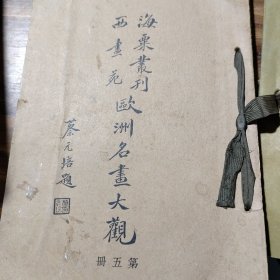 海粟叢刊
西畫苑
歐洲名畫大觀
第五册
蔡元培題